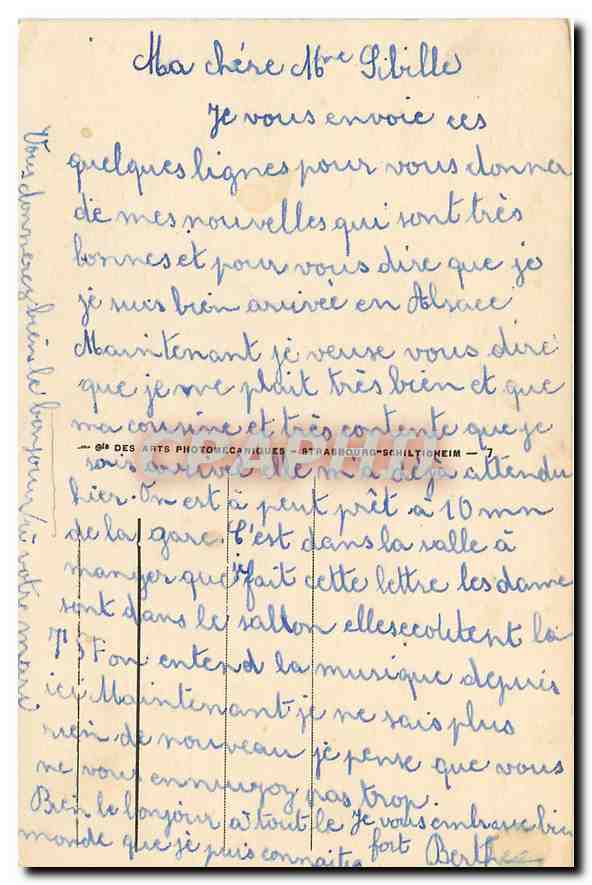 Ma chére Mme Sibille
Je vous envoie ces
quelques lignes pour vous donner
de mes nouvelles qui sont très
bonnes et pour vous dire que je
je suis bien arrivée en Alsace
Maintenant je veuse vous dire
que je me plait très bien et que
ma cousine et très contente que je
Cie DES ARTS PHOTOMÉCANIQUES - STRASBOURG-SCHILTIGHEIM — 7
sois arrivé elle m'a déjà attendu
hier. On est à peut prêt à 10 mn
de la gare. C'est dans la salle à
manger que j'fait cette lettre les dame
sont dans le sallon elles ecoutent la
TSF on entend la musique depuis
ici Maintenant je ne sais plus
rien de nouveau je pense que vous
ne vous ennuyez pas trop.
Bien le bonjour à tout le
monde que je puis connaitre
Je vous embrasse bien
fort Berthe
Vous donnerez bien le bonjour à votre mari